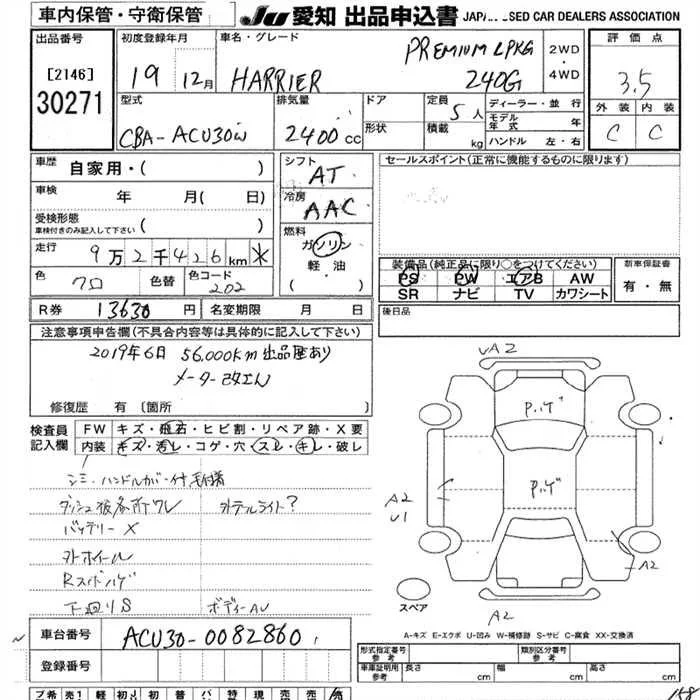 車内保管・守衛保管 JU 愛知 出品申込書 USED CAR DEALERS ASSOCIATION
出品番号 初度登録年月 車名・グレード 評価点
[2146] 30271 19 12月 HARRIER PREMIUM LPKG 240G 2WD・4WD 3.5
型式 排気量 ドア 定員 ディーラー・並行 外装 内装
CBA-ACU30W 2400cc 形状 5人 積載 kg モデル年式 年 ハンドル 左・右 C C
車歴 自家用・( ) シフト AT セールスポイント(正常に機能するものに限ります)
車検 年 月( 日) 冷房 AAC
受検形態 車検付きのみ記入して下さい ( )
走行 9万2千426km * 燃料 ガソリン 軽・油 ・( )
色 クロ 色替 色コード 202
装備品(純正品に限り○をつけてください) 新車保証書
PS PW エアB AW 有・無
SR ナビ TV カワシート
R券 13630円 名変期限 月 日 後日品
注意事項申告欄(不具合内容等は具体的に記入して下さい)
2019年6日 56,000km出品歴あり
メーター改ざん
修復歴 有 (箇所 )
検査員記入欄 FW キズ・飛石・ヒビ割・リペア跡・X要
内装 キズ・汚レ・コゲ・穴・スレ・キレ・破レ
シミ・ハンドルカバー付毛付着
ダッシュ板各所ワレ 外テールライト?
バッテリーX
外ホイール
下廻りS
VA2
P.バゲ
P.バゲ
A2
U1
A2
A2
スペア
A-キズ E-エクボ U-凹み W-補修跡 S-サビ C-腐食 XX-交換済
車台番号 ACU30-0082860
登録番号
形式指定番号 参考 類別区分番号 参考
車庫証明用 参考 長さ cm 幅 cm 高さ cm